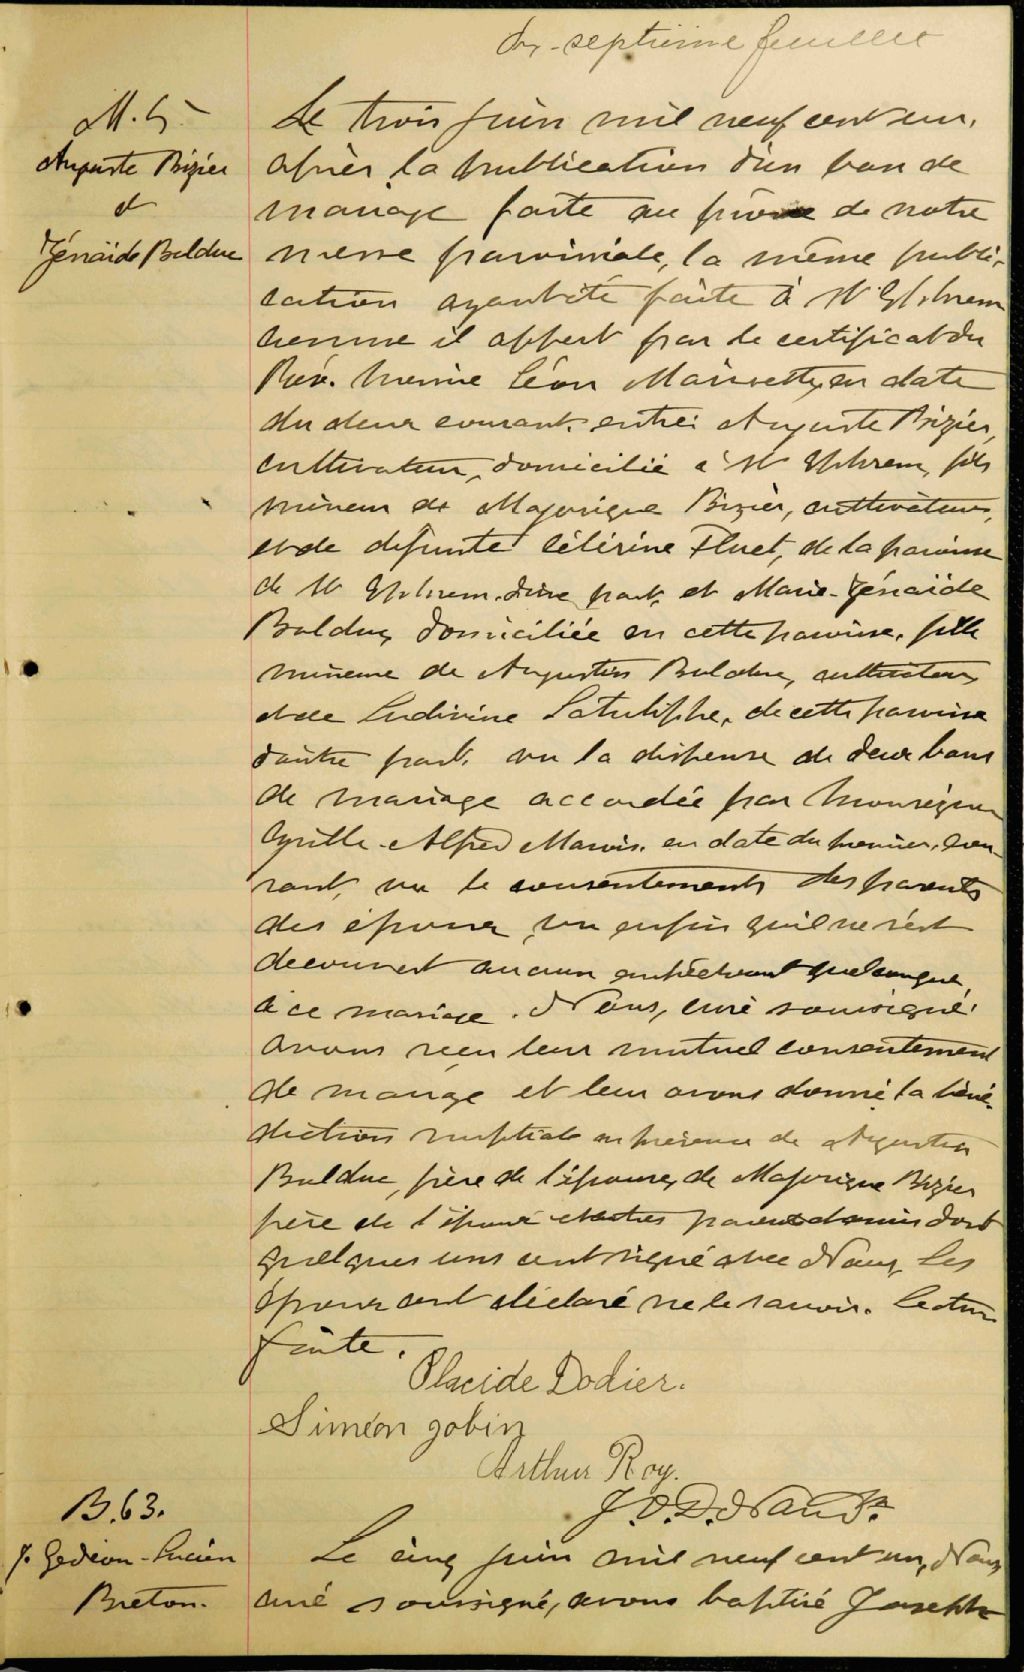 dix-septième feuillet
M. 5
Auguste Bizier
&
Zénaïde Bolduc
Le trois juin mil neuf cent un,
après la publication d'un ban de
mariage faite au prône de notre
messe paroissiale, la même publi-
cation ayant été faite à St Ephrem
comme il appert par le certificat du
Rév. Messire Léon en date
du deux courant, entre Auguste Bizier,
cultivateur, domicilié à St Ephrem, fils
mineur de Majorique Bizier, cultivateur,
et de défunte Célérine Fluet, de la paroisse
de St Ephrem, d'une part, et Marie-Zénaïde
Bolduc, domiciliée en cette paroisse, fille
mineure de Augustin Bolduc, cultivateur,
et de Ludivine Latulippe, de cette paroisse
d'autre part, vu la dispense de deux bans
de mariage accordée par Monseigneur
Cyrille-Alfred Marois, en date du premier, cou-
rant, vu le consentements des parents
des époux, vu enfin qu'il ne s'est
decouvert aucun empêchement quelconque
à ce mariage. Nous, curé soussigné,
avons reçu leur mutuel consentement
de mariage et leur avons donné la béné-
diction nuptiale en présence de Augustin
Bolduc, père de l'épouse, de Majorique Bizier
père de l'époux et autres parents & amis dont
quelques uns ont signé avec Nous, les
époux ont déclaré ne le savoir. Lecture
faite.
Placide Dodier.
Siméon Jobin
Arthur Roy.
J. O. D.
B. 63.
J. Gédéon-Lucien
Breton.
Le cinq juin mil neuf cent un, Nous
curé soussigné, avons baptisé Joseph